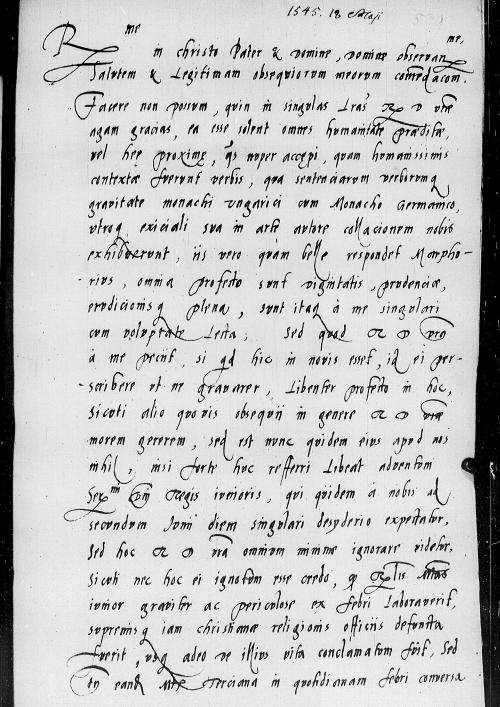 1545. 18 Maji
Rme in christo Pater & Domine, Domine observanme,
Salutem & Legitimam obsequiorum meorum comedacom.
Facere non possum, quin in singulas Lras R D vrae
agam gracias, ea esse solent omnes humanitate praeditae,
vel hee proxime, qs nuper accepi, quam humanissimis
contextae fuerunt verbis, qua sentenciarum verborumq
gravitate monachi Ungarici cum Monacho Germanico,
utroq exiciali sua in arte autore collacionem nobis
exhibuerunt, iis vero quam belle respondet Morpho-
rius, omnia profecto sunt dignitatis, prudenciae,
erudicionisq plena, sunt itaq à me singulari
cum voluptate Lecta; Sed quod R D vra
à me petit, si qd hic in novis esset, id ei per-
-scribere ut ne gravarer, Libenter profecto in hoc,
Sicuti alio quovis obsequii in genere R D vrae
morem gererem, sed est nunc quidem eius apud nos
nihil, nisi forte huc referri Libeat adventum
Sermi Regis iunioris, qui quidem à nobis ad
secundum Junii diem singulari desyderio expectatur,
Sed hoc R D vra omnium minime ignorare videtur,
Sicuti nec hoc ei ignotum esse credo, qd Rglis
iunior graviter ac periculose ex febri Laboraverit,
supremisq iam christianae religionis officiis defuncta
fuerit, usq adeo ut illius vita conclamatum fuit, Sed
eand Terciana in quotidianam febri conversa